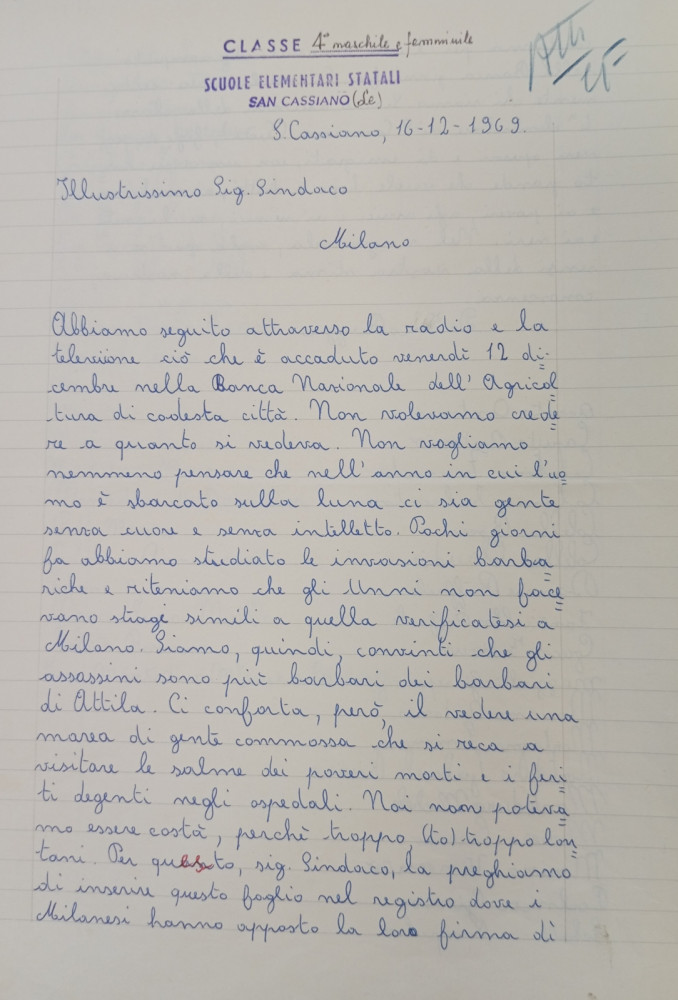 CLASSE 4ª maschile e femminile
SCUOLE ELEMENTARI STATALI
SAN CASSIANO (Le)
S. Cassiano, 16-12-1969.
Illustrissimo Sig. Sindaco
Milano
Abbiamo seguito attraverso la radio e la
televisione ciò che è accaduto venerdì 12 di-
cembre nella Banca Nazionale dell'Agricol
tura di codesta città. Non volevamo crede
re a quanto si vedeva. Non vogliamo
nemmeno pensare che nell'anno in cui l'uo
mo è sbarcato sulla luna ci sia gente
senza cuore e senza intelletto. Pochi giorni
fa abbiamo studiato le invasioni barba
riche e riteniamo che gli Unni non face
vano stragi simili a quella verificatesi a
Milano. Siamo, quindi, convinti che gli
assassini sono più barbari dei barbari
di Attila. Ci conforta, però, il vedere una
marea di gente commossa che si reca a
visitare le salme dei poveri morti e i feri
ti degenti negli ospedali. Noi non poteva
mo essere costà, perchè troppo, (to) troppo lon
tani. Per questo, sig. Sindaco, la preghiamo
di inserire questo foglio nel registro dove i
Milanesi hanno apposto la loro firma di